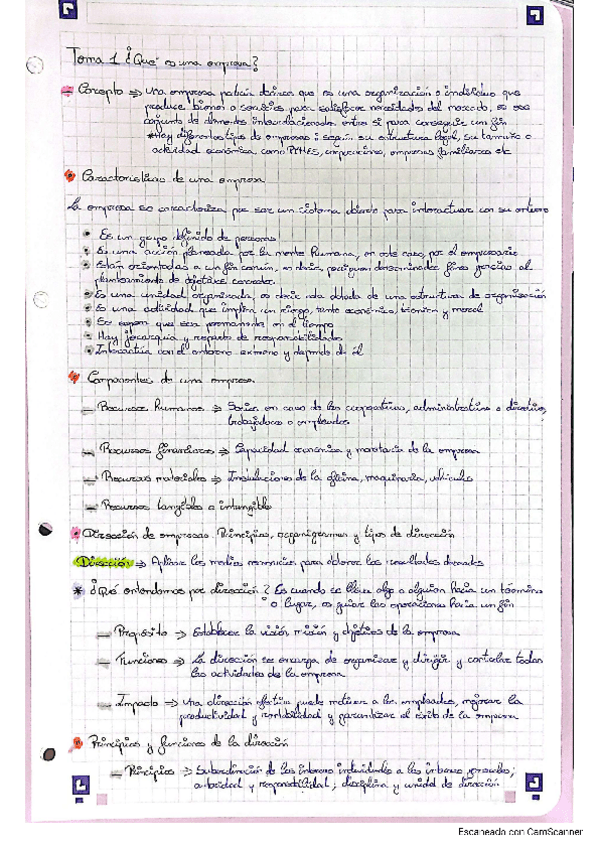 Tema 1 ¿Qué es una empresa?
Concepto → Una empresa podría decirse que es una organización o individuo que
produce bienes o servicios para satisfacer necesidades del mercado, es ese
conjunto de elementos interrelacionados entre sí para conseguir un fin
*Hay diferentes tipos de empresas: según su estructura legal, su tamaño o
actividad económica como PYMES, corporaciones, empresas familiares etc
Características de una empresa
La empresa se caracteriza por ser un sistema abierto para interactuar con su entorno
Es un grupo definido de personas
Es una acción planeada por la mente humana, en este caso, por el empresario
Están orientadas a un fin común, es decir, persiguen determinados fines gracias al
planteamiento de objetivos
Es una unidad organizada, es decir esta dotada de una estructura de organización
Es una actividad que implica un riesgo, tanto económico, técnico y moral
Se espera que sea permanente en el tiempo
Hay jerarquía y reparto de responsabilidades
Interactúa con el entorno externo y depende de él
Componentes de una empresa
Recursos humanos → Socios en caso de las cooperativas, administrativos o directivos,
trabajadores o empleados
Recursos financieros → Capacidad económica y monetaria de la empresa
Recursos materiales → Instalaciones de la oficina, maquinaria, vehículos
Recursos tangibles o intangibles
Dirección de empresas. Principios, organigramas y tipos de dirección
Dirección → Aplicar los medios necesarios para obtener los resultados deseados
* ¿Qué entendemos por dirección? Es cuando se lleva algo o alguien hacia un término
o lugar, es guiar las operaciones hacia un fin
Propósito → Establecer la visión, misión y objetivos de la empresa
Funciones → La dirección se encarga de organizar y dirigir y controlar todas
las actividades de la empresa
Impacto → Una dirección efectiva puede motivar a los empleados, mejorar la
productividad y rentabilidad y garantizar el éxito de la empresa
Principios y funciones de la dirección
Principios → Subordinación de los intereses individuales a los intereses generales;
autoridad y responsabilidad; disciplina y unidad de dirección
Escaneado con CamScanner